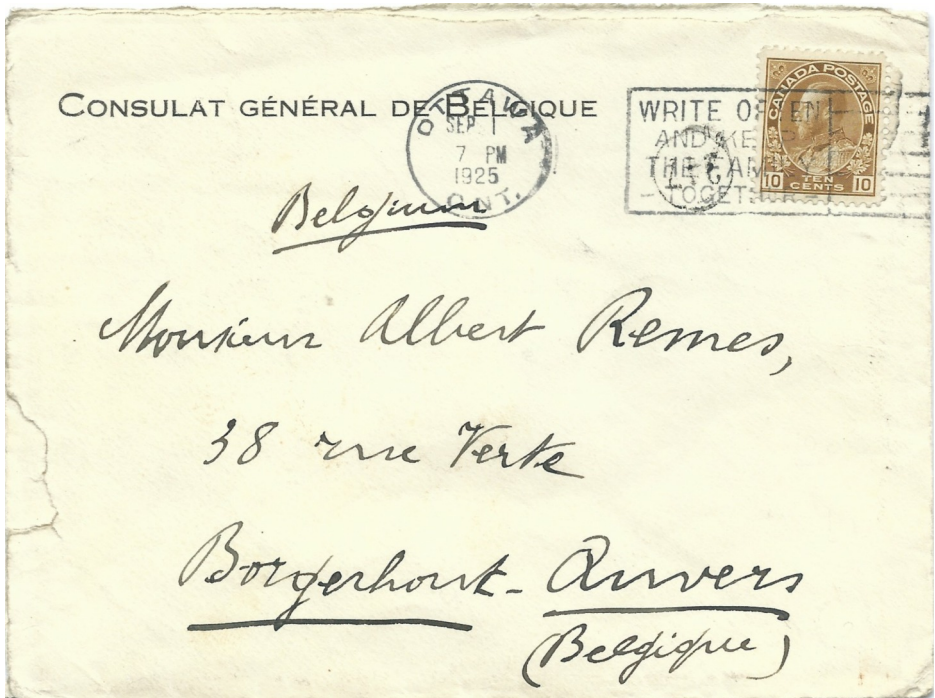 CONSULAT GÉNÉRAL DE BELGIQUE
OTTAWA
SEP 1
7 PM
1925
ONT.
WRITE OFTEN
AND KEEP
THE FAMILY
TOGETHER
CANADA POSTAGE
10 TEN CENTS 10
Belgium
Monsieur Albert Remes,
38 rue Verte
Borgerhout - Anvers
(Belgique)